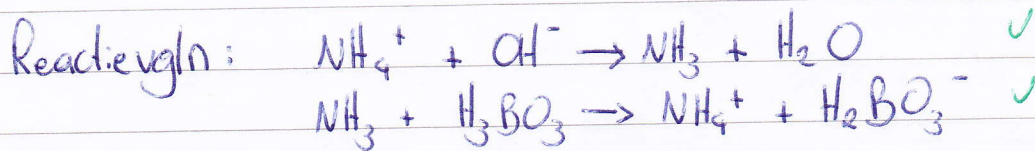 Reactievgln: NH₄⁺ + OH⁻ → NH₃ + H₂O ✓
NH₃ + H₃BO₃ → NH₄⁺ + H₂BO₃⁻ ✓